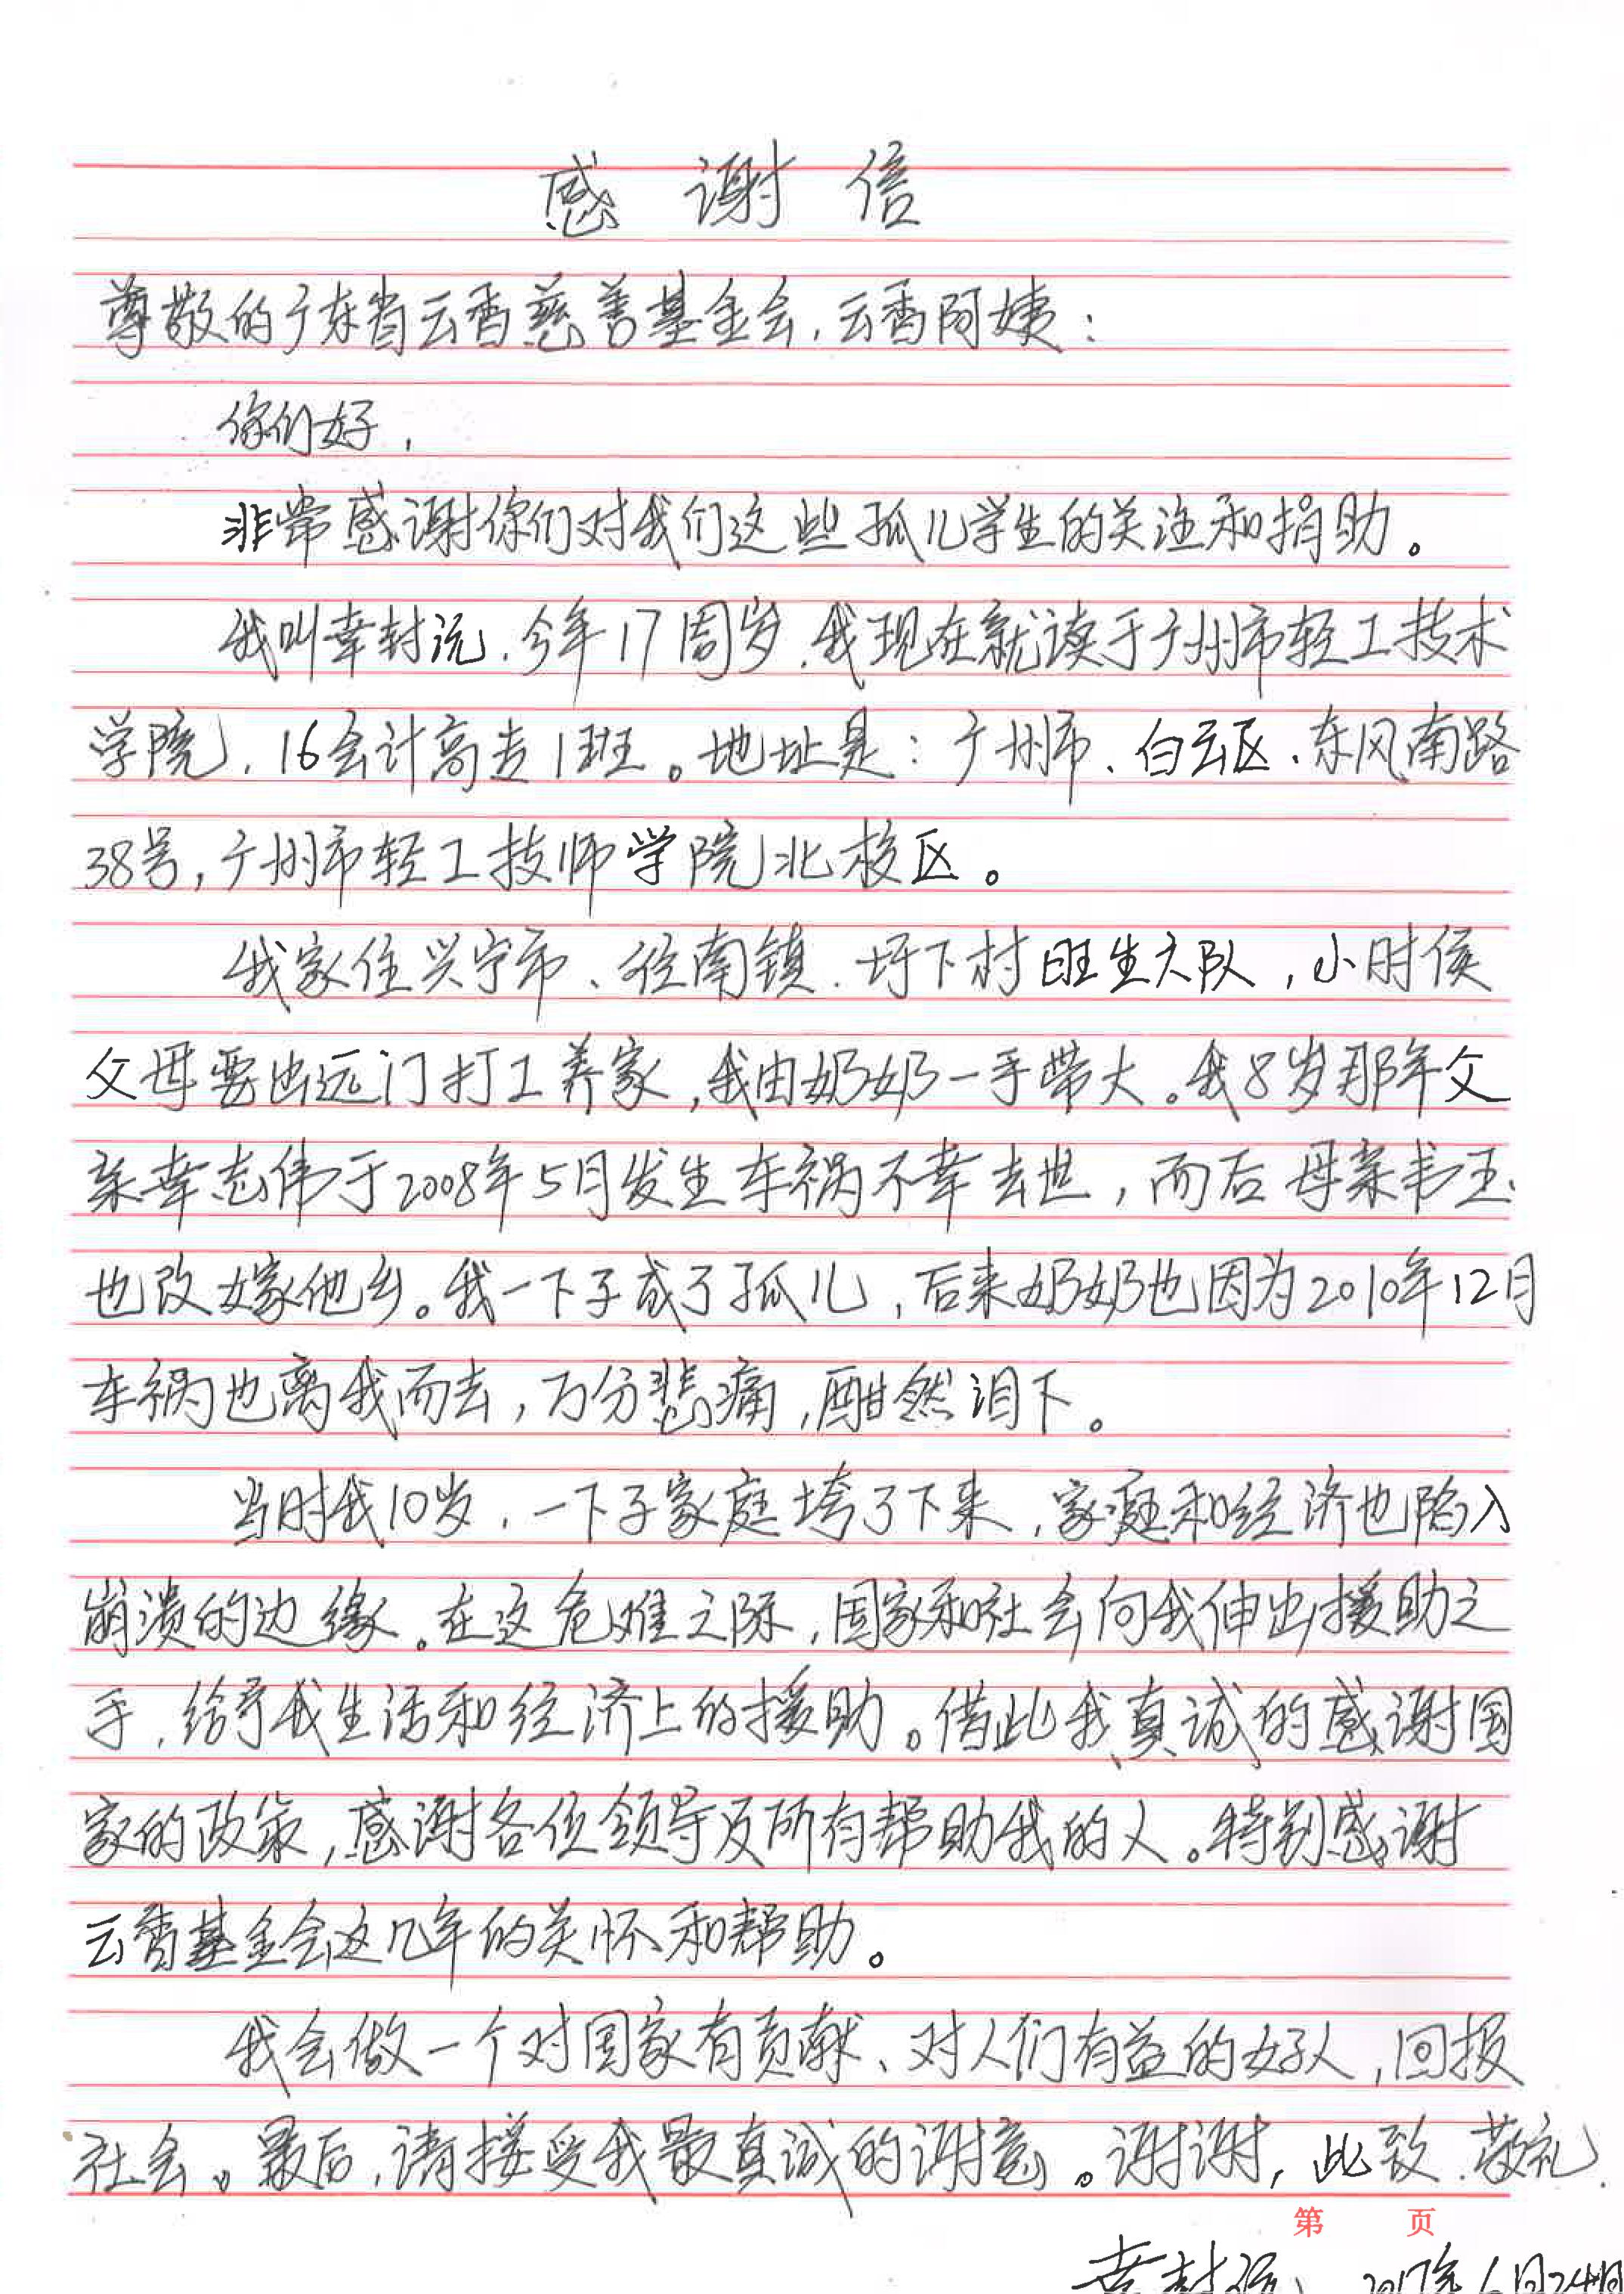 感谢信
尊敬的广东省云香慈善基金会,云香阿姨：
你们好,
非常感谢你们对我们这些孤儿学生的关注和捐助。
我叫幸封沅.今年17周岁.我现在就读于广州市轻工技术
学院,16会计高专1班。地址是：广州市、白云区、东风南路
38号,广州市轻工技师学院北校区。
我家住兴宁市、径南镇.圩下村旺生大队,小时侯
父母要出远门打工养家,我由奶奶一手带大。我8岁那年父
亲幸志伟于2008年5月发生车祸不幸去世,而后母亲韦玉
也改嫁他乡。我一下子成了孤儿,后来奶奶也因为2010年12月
车祸也离我而去,万分悲痛,酣然泪下。
当时我10岁,一下子家庭垮了下来,家庭和经济也陷入
崩溃的边缘。在这危难之际,国家和社会向我伸出援助之
手,给予我生活和经济上的援助。借此我真诚的感谢国
家的政策,感谢各位领导及所有帮助我的人。特别感谢
云香基金会这几年的关怀和帮助。
我会做一个对国家有贡献、对人们有益的好人,回报
社会。最后,请接受我最真诚的谢意。谢谢,此致.敬礼.
第 页
幸封沅 2017年6月24日